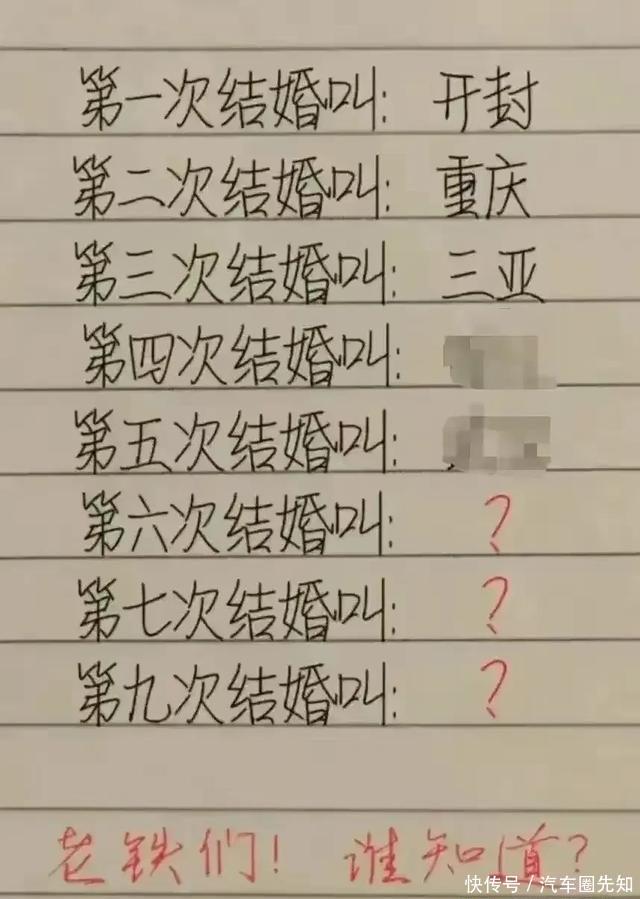 第一次结婚叫: 开封
第二次结婚叫: 重庆
第三次结婚叫: 三亚
第四次结婚叫:
第五次结婚叫:
第六次结婚叫: ?
第七次结婚叫: ?
第九次结婚叫: ?
老铁们! 谁知道?
快传号/汽车圈先知